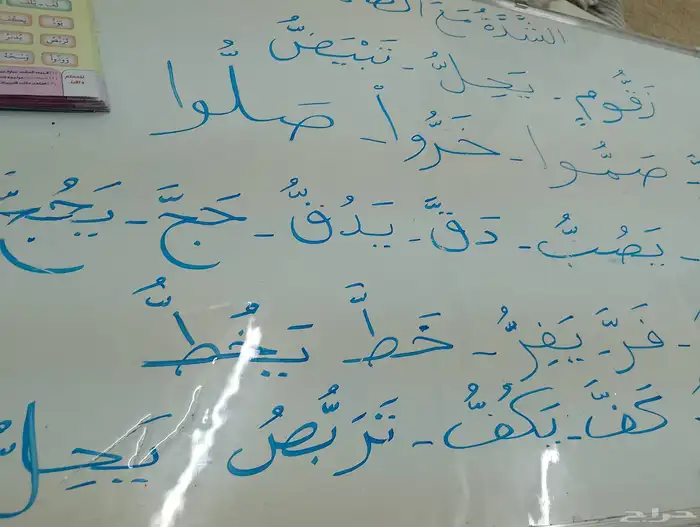 الشَّدَّةُ مَعَ
زَقُّومٍ - يَحِلُّ - تَبْيَضُّ
صَمُّوا - خَرُّواْ - صَلُّوا
- يَصُبُّ - دَقَّ - يَدُقُّ - حَجَّ - يَحُجُّ
- فَرَّ - يَفِرُّ - خَطَّ يَخُطُّ
كَفَّ - يَكُفُّ - تَرَبُّصُ يَحِلُّ
حراج